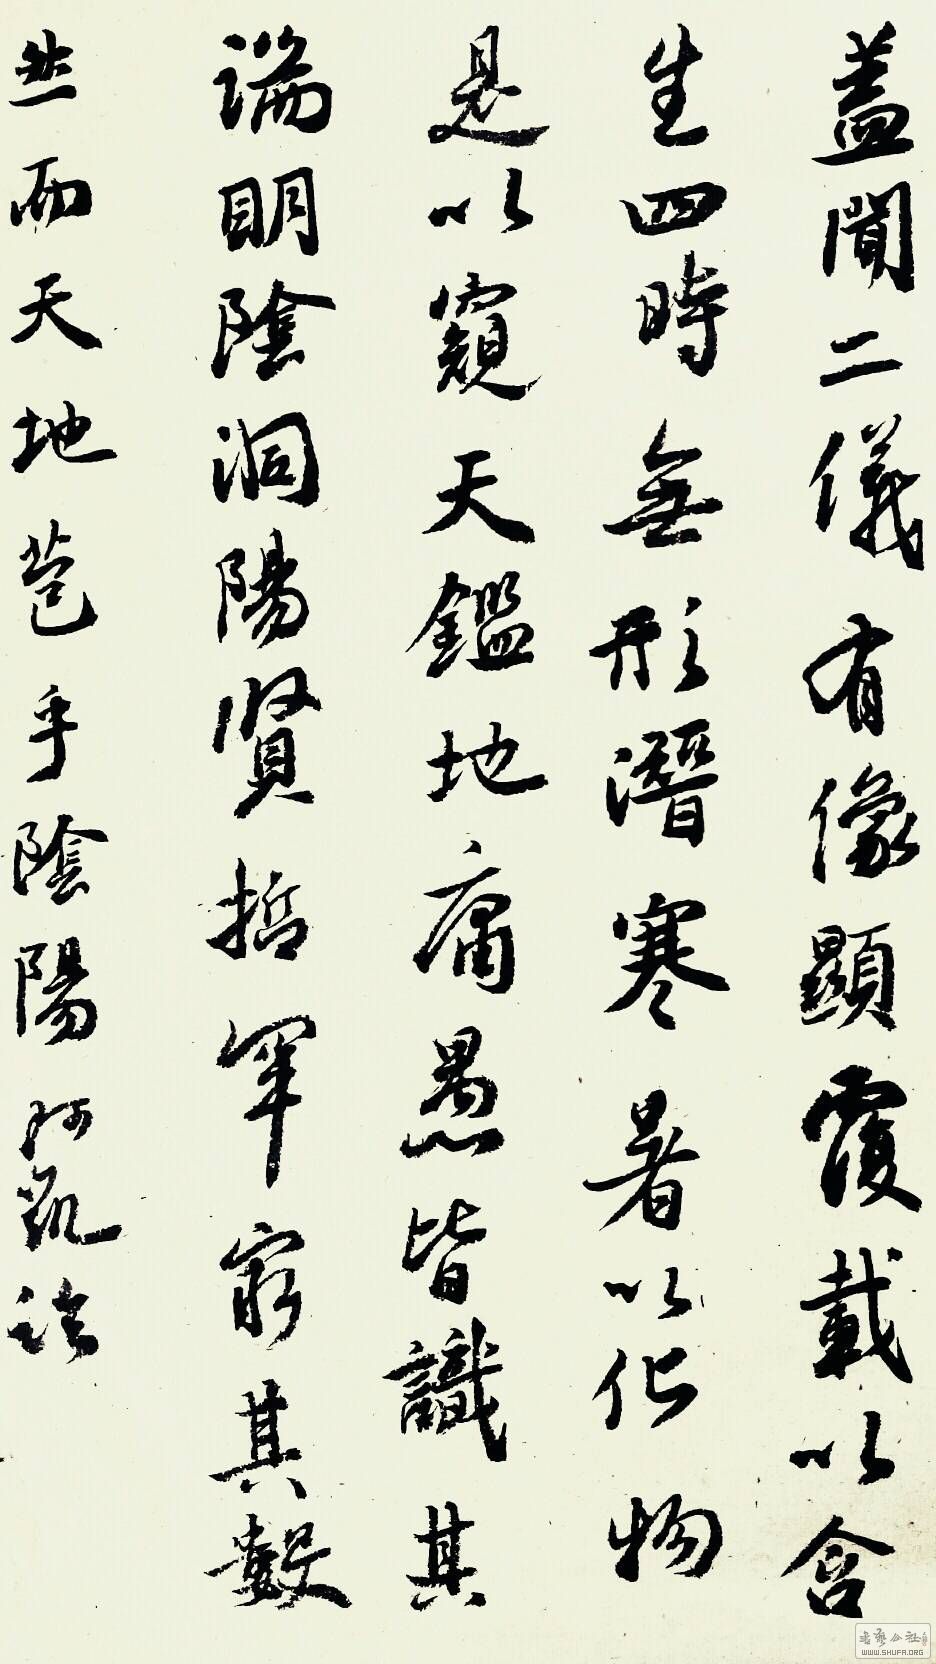 蓋聞二儀有像顯覆載以含
生四時無形潛寒暑以化物
是以窺天鑑地庸愚皆識其
端明陰洞陽賢哲罕窮其數
然而天地苞乎陰陽
WWW.SHUFA.ORG